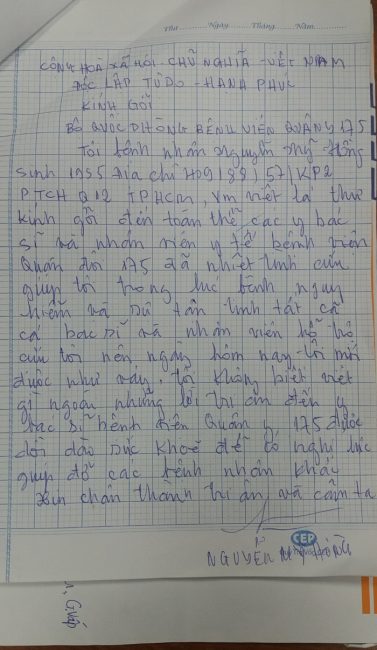 Thứ Ngày Tháng Năm
CÔNG HOÀ XÃ HỘI CHỦ NGHĨA VIỆT NAM
ĐỘC LẬP TỰ DO - HẠNH PHÚC
KÍNH GỞI
BỘ QUỐC PHÒNG BÊNH VIÊN QUÂN Y 175
Tôi bệnh nhân Nguyễn Mỹ Hồng
Sinh 1955 Địa chỉ H09/89/57/KP2
PTCH Q12 TPHCM, xm viết lá thư
kính gỡi đến toàn thể các y bác
sĩ và nhân viên y tế bệnh viện
Quân đôi 175 đã nhiệt tình cứu
giúp tôi trong lúc bênh nguy
hiễm và sự tận tình tất cả
cả bác sĩ và nhân viên hổ trợ
cứu tôi nên ngày hôm nay tôi mới
được như vầy, tôi không biết viết
gì ngoan những lời tri ân đến y
bác sĩ bênh viện Quân y 175 được
dồi dào sức khoẻ để có nghị lực
giúp đỡ các bênh nhân khác
Xin chân thành tri ân và cảm tạ
CEP
NGUYỄN MỸ HỒNG
Giúp